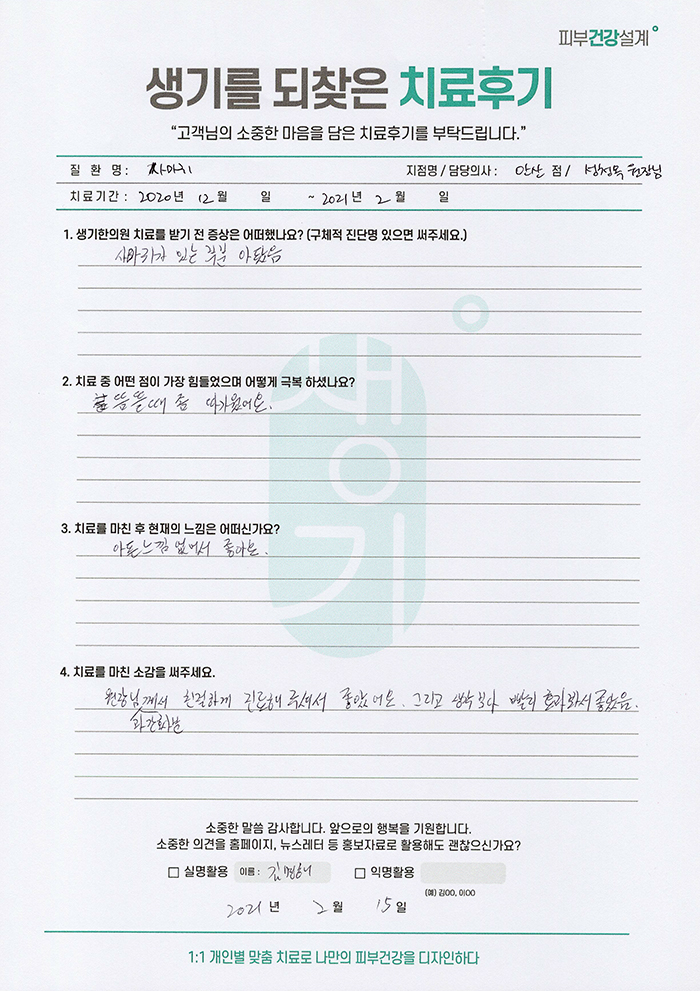 피부건강설계
생기를 되찾은 치료후기
“고객님의 소중한 마음을 담은 치료후기를 부탁드립니다.”
질 환 명 : 사마귀 지점명 / 담당의사 : 안산 점 / 원장님
치료기간 : 2020년 12월 일 ~ 2021년 2월 일
1. 생기한의원 치료를 받기 전 증상은 어떠했나요? (구체적 진단명 있으면 써주세요.)
사마귀가 있는 부분 아팠음
2. 치료 중 어떤 점이 가장 힘들었으며 어떻게 극복 하셨나요?
뜸 뜰때 좀 따가웠어요.
3. 치료를 마친 후 현재의 느낌은 어떠신가요?
아픈느낌 없어서 좋아요.
4. 치료를 마친 소감을 써주세요.
원장님께서 친절하게 진료해 주셔서 좋았어요. 그리고 생각보다 빨리 효과봐서 좋았음.
과 간호사분
생기
소중한 말씀 감사합니다. 앞으로의 행복을 기원합니다.
소중한 의견을 홈페이지, 뉴스레터 등 홍보자료로 활용해도 괜찮으신가요?
실명활용 이름 : 익명활용
(예) 김OO, 이OO
2021 년 2 월 15 일
1:1 개인별 맞춤 치료로 나만의 피부건강을 디자인하다